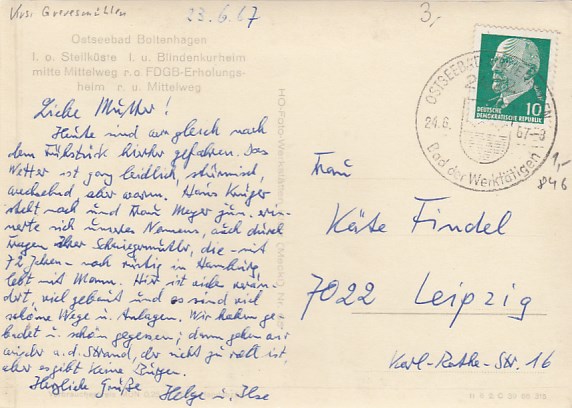 Krs. Grevesmühlen
23.6.67
3,
Ostseebad Boltenhagen
l. o. Steilküste l. u. Blindenkurheim
mitte Mittelweg r. o. FDGB-Erholungs-
heim r. u. Mittelweg
Liebe Mutter!
Heute sind wir gleich nach
dem Frühstück hierher gefahren. Das
Wetter ist ganz leidlich, stürmisch,
wechselnd aber warm. Haus Krüger
steht noch und Frau Meyer jun. erin-
nerte sich unseres Namens, auch durch
Fragen Ihrer Schwiegermutter, die - mit
72 Jahren - noch rüstig in Hamburg
lebt mit Mann. Hier ist vieles verän-
dert, viel gebaut und es sind viel
schöne Wege u. Anlagen. Wir haben ge-
badet u. schön gegessen; dann gehen wir
wieder a. d. Strand, der nicht zu voll ist,
aber es gibt keine Burgen.
Herzliche Grüße Helge u. Ilse
HO-Foto-Werkstätten
OSTSEEBAD
24.6. 67-8
Bad der Werktätigen
DEUTSCHE
DEMOKRATISCHE REPUBLIK
10
1,-
846
Frau
Käte Findel
7022 Leipzig
Karl-Rothe-Str. 16